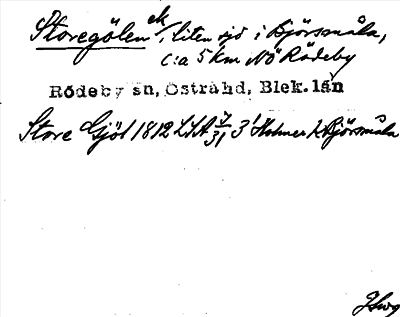 Storegölen ek/, liten sjö i Björsmåla,
c:a 5 km NÖ Rödeby
Rödeby sn, Östra hd, Blek. län
Store Gjöl 1812 LSA 7/31 3 Holmer i Björsmåla